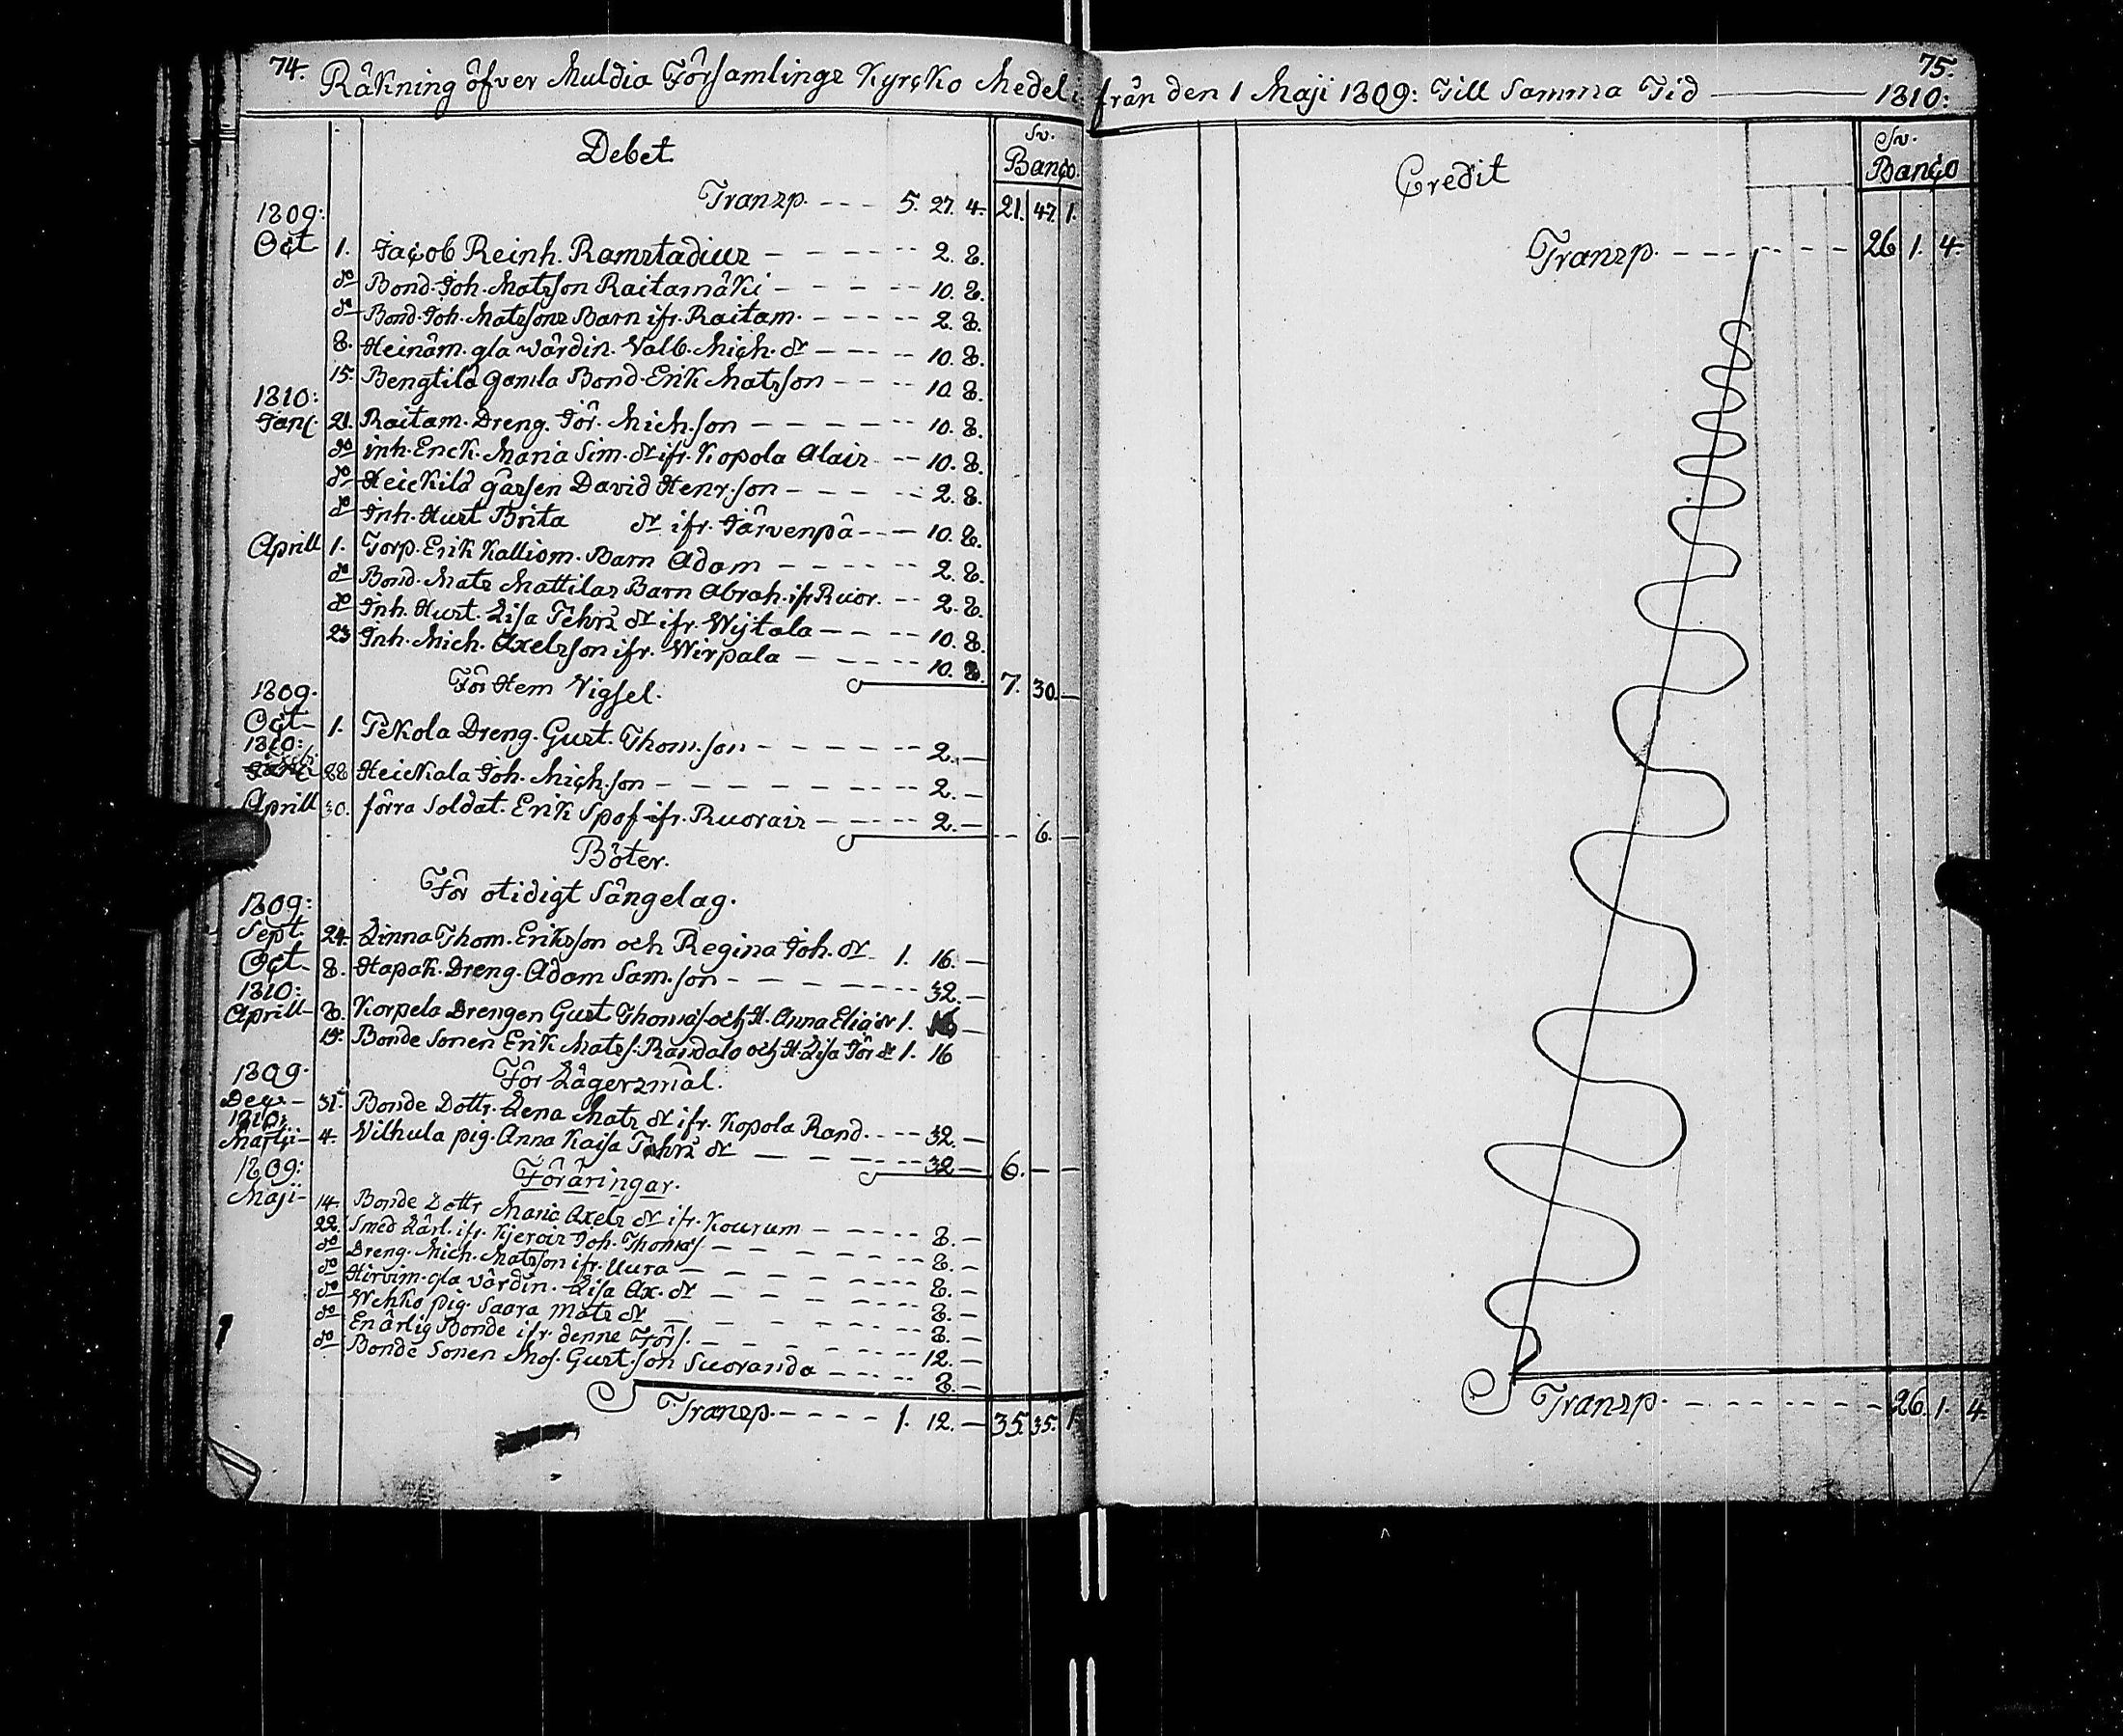 74.
Räkning öfver Muldia Församlings Kyrcko Medel i från den 1 Maji 1809: Till Samma Tid 1810:
75.
Debet
Sv.
Banço.
Transp. 5. 27. 4. 21. 47. 1.
1809:
Oct 1. Jacob Reinh. Ramstadius 2. 8.
do Bond. Joh. Matsson Raitamäki 10. 8.
do Bond. Joh. Matssons Barn ifr. Raitam. 2. 8.
8. Heinäm. gla värdin. Valb. Mich. dr 10. 8.
15. Bengtilä gamla Bond. Erik Matsson 10. 8.
1810:
Jan. 21. Raitam. Dreng. Jör. Mich.son 10. 8.
do inh. Enck. Maria Sim. dr ifr. Kopola Alais 10. 8.
do Heickilä gåssen David Henr.son 2. 8.
do Inh. Hust Brita dr ifr. Järvenpä 10. 8.
Aprill 1. Torp. Erik Kalliom. Barn Adam 2. 8.
do Bond. Mats Mattilas Barn Abrah. ifr Ruor. 2. 8.
do Inh. Hust. Lisa Fehrs dr ifr. Wijtala 10. 8.
23 Inh. Mich. Axelsson ifr. Wirpala 10. 8.
För Hem Vigsel. 7. 30. —
1809.
Oct 1. Pekola Dreng. Gust. Thom.son 2. —
1810:
22 Heickala Joh. Mich.son 2. —
Aprill 30. förra Soldat. Erik Spof ifr. Ruorais 2. — 6. —
Böter.
För otidigt Sängelag.
1809:
Sept. 24. Linna Thom. Eriksson och Regina Joh. dr 1. 16. —
Oct 8. Hapak. Dreng. Adam Sam.son 32. —
1810:
Aprill 8. Korpela Drengen Gust Thomas. och H. Anna Elia dr 1. 16 —
15. Bonde Sonen Erik Mats. Randala och H. Lisa Jör dr 1. 16
För Lägersmål.
1809.
Dec. 31. Bonde Dottr. Lena Mats dr ifr. Kopola Rand. 32. —
1810:
Martii 4. Vilhula pig. Anna Kaisa Fehrs dr 32 — 6. — —
Föräringar.
1809:
Maji 14. Bonde Dottr Maria Axels dr ifr. Kourum 8. —
22. Smed Lärl. ifr. Kjerois Joh. Thomas. 8. —
do Dreng. Mich. Matsson ifr. Uura 8. —
do Hirvim. gla värdin. Lisa Ax. dr 8. —
do Wehko pig. Saara Mats dr 8. —
do En ärlig Bonde ifr. denne Förs. 12. —
do Bonde Sonen Mos. Gust.son Suoranda 8. —
Transp. 1. 12. — 35. 35. 1
Credit
Sv.
Banço
Transp. 26 1. 4.
Transp. 26. 1. 4.